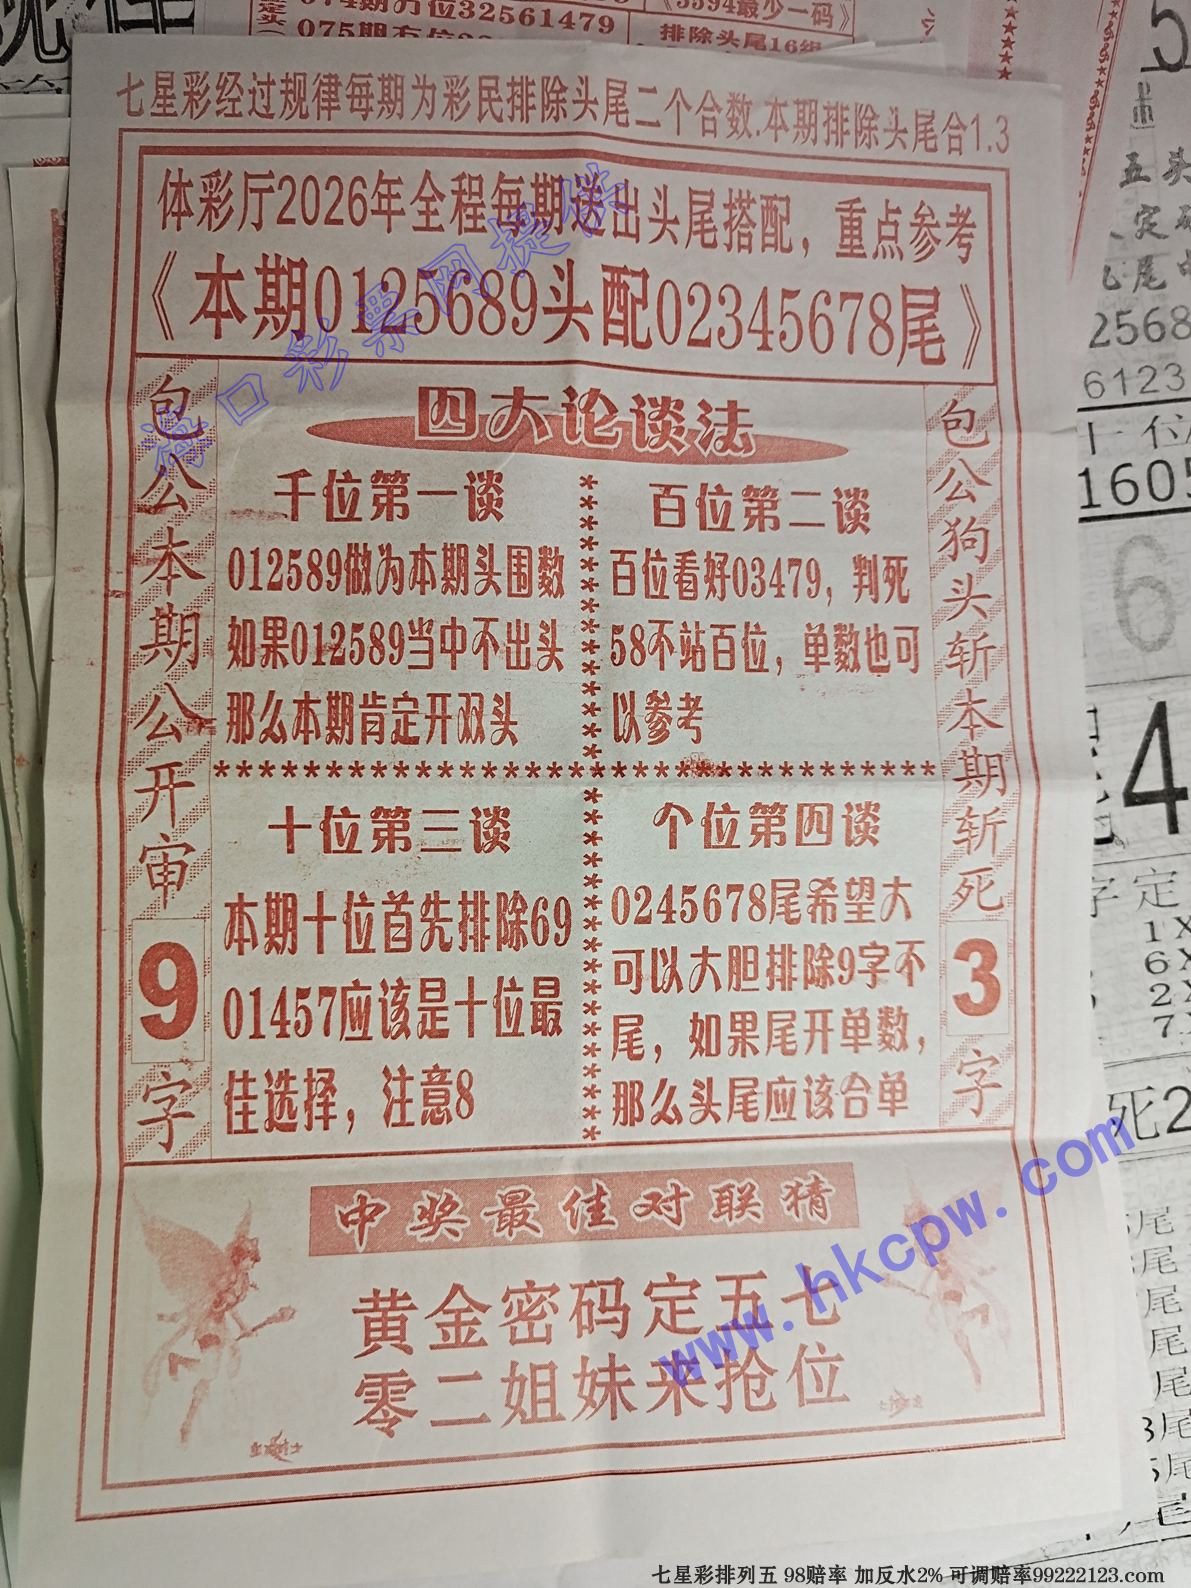 074期万位32561479
075期百位
《5594最少一码》
排除头尾16组
七星彩经过规律每期为彩民排除头尾二个合数.本期排除头尾合1.3
体彩厅2026年全程每期送出头尾搭配，重点参考
《本期0125689头配02345678尾》
包公本期公开审9字
四大论谈法
千位第一谈
012589做为本期头围数
如果012589当中不出头
那么本期肯定开双头
百位第二谈
百位看好03479，判死
58不站百位，单数也可
以参考
************************************
十位第三谈
本期十位首先排除69
01457应该是十位最
佳选择，注意8
个位第四谈
0245678尾希望大
可以大胆排除9字不
尾，如果尾开单数，
那么头尾应该合单
包公狗头斩本期斩死3字
中奖最佳对联猜
黄金密码定五七
零二姐妹来抢位
海口彩票网提供
www.hkcpw.com
五头
2568
6123
1605
6
4
字定
死2
七星彩排列五 98赔率 加反水2% 可调赔率99222123.com